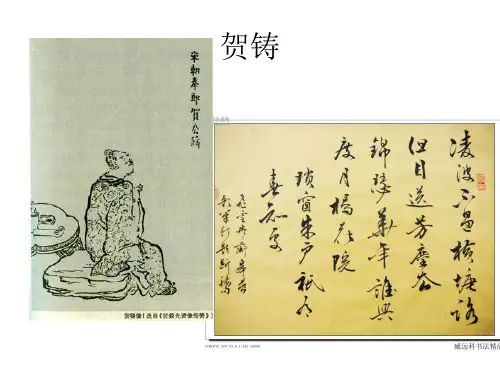 贺铸
宋朝奉郎賀公鑄
贺铸像(选自《於越先贤像传赞》)
凌波不過橫塘路
但目送芳塵去
錦瑟華年誰與
度月橋花院
瑣窗朱户祇有
春知處
远科书法精品